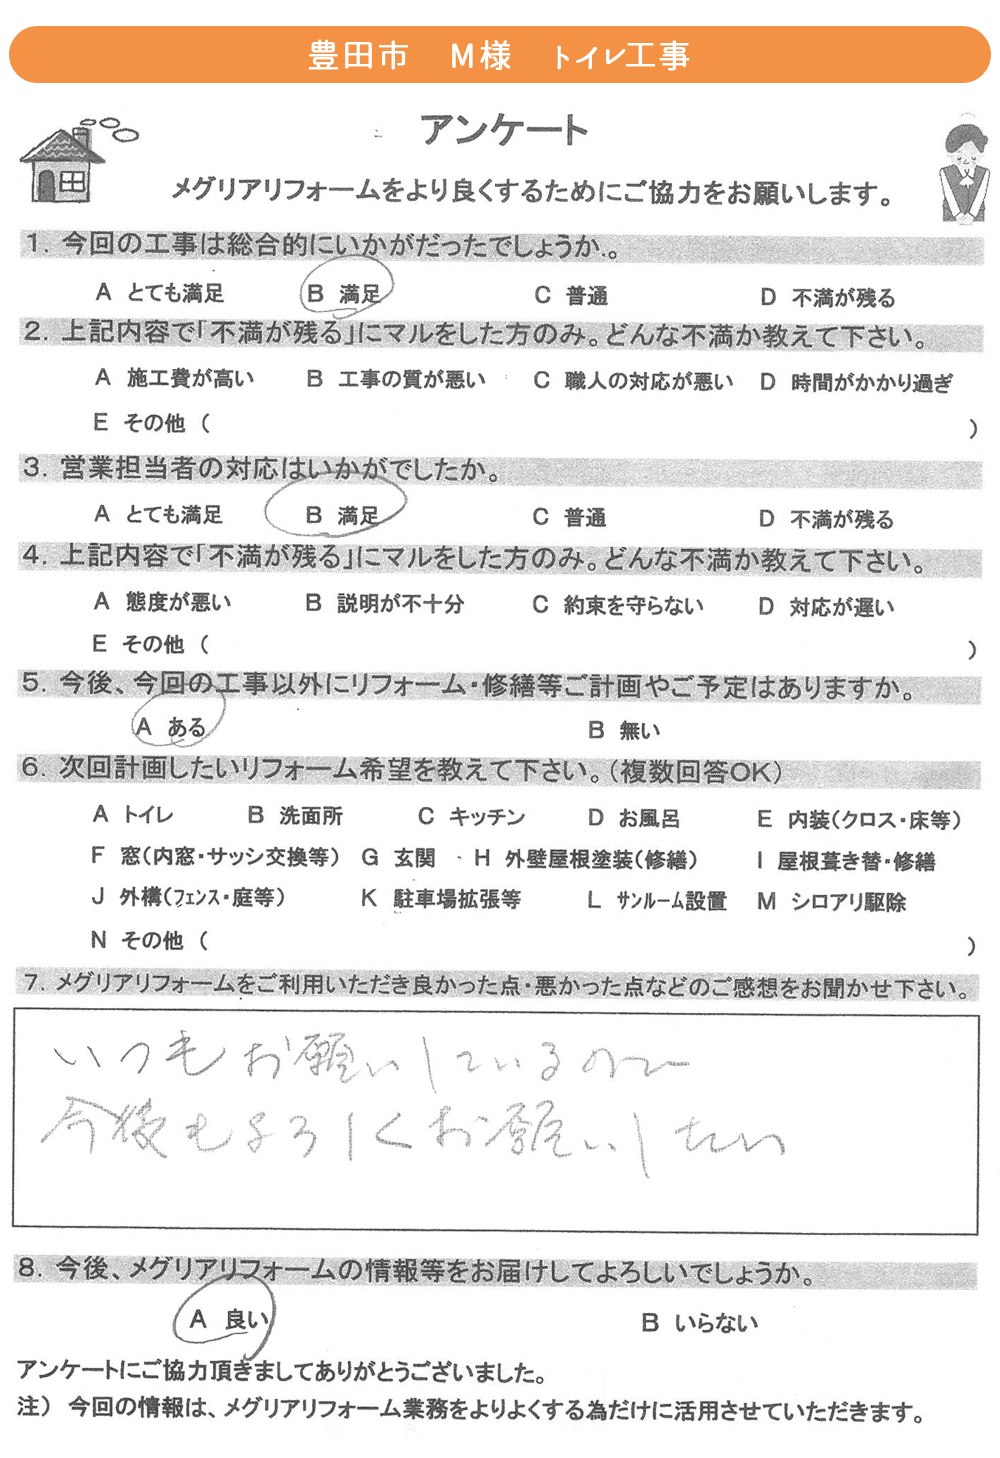 豊田市　M様　トイレ工事
アンケート
メグリアリフォームをより良くするためにご協力をお願いします。
1. 今回の工事は総合的にいかがだったでしょうか.。
A とても満足 B 満足 C 普通 D 不満が残る
2. 上記内容で「不満が残る」にマルをした方のみ。どんな不満か教えて下さい。
A 施工費が高い B 工事の質が悪い C 職人の対応が悪い D 時間がかかり過ぎ
E その他 （ ）
3. 営業担当者の対応はいかがでしたか。
A とても満足 B 満足 C 普通 D 不満が残る
4. 上記内容で「不満が残る」にマルをした方のみ。どんな不満か教えて下さい。
A 態度が悪い B 説明が不十分 C 約束を守らない D 対応が遅い
E その他 （ ）
5. 今後、今回の工事以外にリフォーム・修繕等ご計画やご予定はありますか。
A ある B 無い
6. 次回計画したいリフォーム希望を教えて下さい。（複数回答OK）
A トイレ B 洗面所 C キッチン D お風呂 E 内装（クロス・床等）
F 窓（内窓・サッシ交換等） G 玄関 H 外壁屋根塗装（修繕） I 屋根葺き替・修繕
J 外構（ﾌｪﾝｽ・庭等） K 駐車場拡張等 L ｻﾝﾙｰﾑ設置 M シロアリ駆除
N その他 （ ）
7. メグリアリフォームをご利用いただき良かった点・悪かった点などのご感想をお聞かせ下さい。
いつもお願いしているので
今後もよろしくお願いしたい
8. 今後、メグリアリフォームの情報等をお届けしてよろしいでしょうか。
A 良い B いらない
アンケートにご協力頂きましてありがとうございました。
注） 今回の情報は、メグリアリフォーム業務をよりよくする為だけに活用させていただきます。